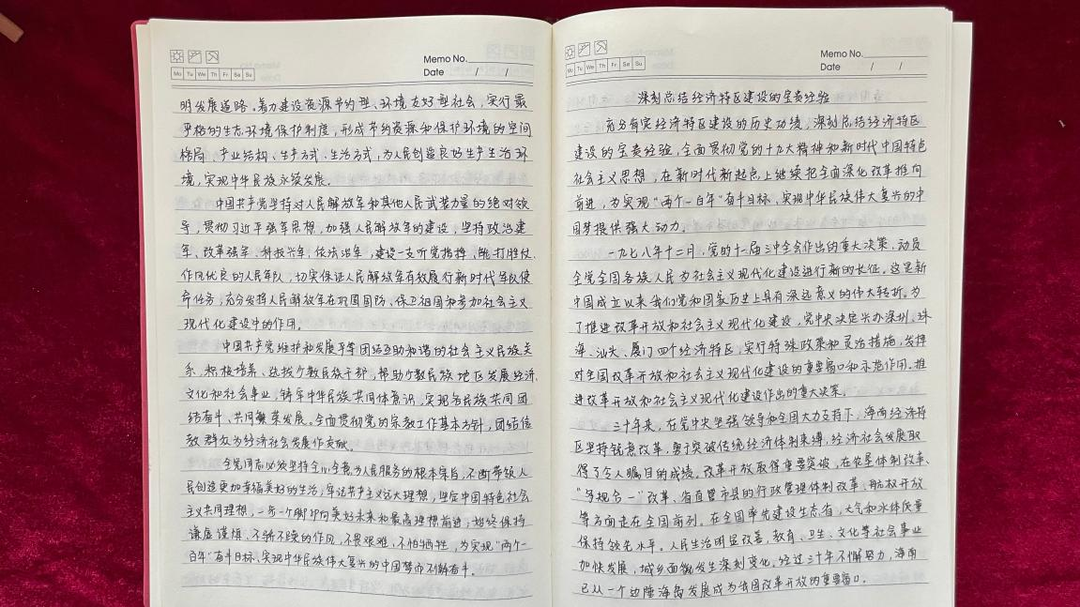 Memo No.
Date / /
Mo Tu We Th Fr Sa Su
明发展道路。着力建设资源节约型、环境友好型社会，实行最
严格的生态环境保护制度，形成节约资源和保护环境的空间
格局、产业结构、生产方式、生活方式，为人民创造良好生产生活环
境，实现中华民族永续发展。
中国共产党坚持对人民解放军和其他人民武装力量的绝对领
导，贯彻习近平强军思想，加强人民解放军的建设，坚持政治建
军、改革强军、科技兴军、依法治军，建设一支听党指挥、能打胜仗、
作风优良的人民军队，切实保证人民解放军有效履行新时代军队使
命任务，充分发挥人民解放军在巩固国防、保卫祖国和参加社会主义
现代化建设中的作用。
中国共产党维护和发展平等团结互助和谐的社会主义民族关
系，积极培养、选拔少数民族干部，帮助少数民族地区发展经济、
文化和社会事业，铸牢中华民族共同体意识，实现各民族共同团
结奋斗、共同繁荣发展。全面贯彻党的宗教工作基本方针，团结信
教群众为经济社会发展作贡献。
全党同志必须坚持全心全意为人民服务的根本宗旨，不断带领人
民创造更加幸福美好的生活，牢记共产主义远大理想，坚定中国特色社会
主义共同理想，一步一个脚印向美好未来和最高理想前进，始终保持
谦虚谨慎、不骄不躁的作风，不畏艰难、不怕牺牲，为实现“两个一
百年”奋斗目标、实现中华民族伟大复兴的中国梦而不懈奋斗。
Memo No.
Date / /
Mo Tu We Th Fr Sa Su
深刻总结经济特区建设的宝贵经验
充分肯定经济特区建设的历史功绩，深刻总结经济特区
建设的宝贵经验，全面贯彻党的十九大精神和新时代中国特色
社会主义思想，在新时代新起点上继续把全面深化改革推向
前进，为实现“两个一百年”奋斗目标、实现中华民族伟大复兴的中
国梦提供强大动力。
一九七八年十二月，党的十一届三中全会作出的重大决策，动员
全党全国各族人民为社会主义现代化建设进行新的长征。这是新
中国成立以来我们党和国家历史上具有深远意义的伟大转折。为
了推进改革开放和社会主义现代化建设，党中央决定兴办深圳、珠
海、汕头、厦门四个经济特区，实行特殊政策和灵活措施，发挥
对全国改革开放和社会主义现代化建设的重要窗口和示范作用。推
进改革开放和社会主义现代化建设作出的重大决策。
三十年来，在党中央坚强领导和全国大力支持下，海南经济特
区坚持锐意改革，勇于突破传统经济体制束缚，经济社会发展取
得了令人瞩目的成绩。改革开放取得重要突破，在农垦体制改革、
“多规合一”改革、省直管市县的行政管理体制改革、航权开放
等方面走在全国前列。在全国率先建设生态省，大气和水体质量
保持领先水平。人民生活明显改善，教育、卫生、文化等社会事业
加快发展，城乡面貌发生深刻变化。经过三十年不懈努力，海南
已从一个边陲海岛发展成为我国改革开放的重要窗口。